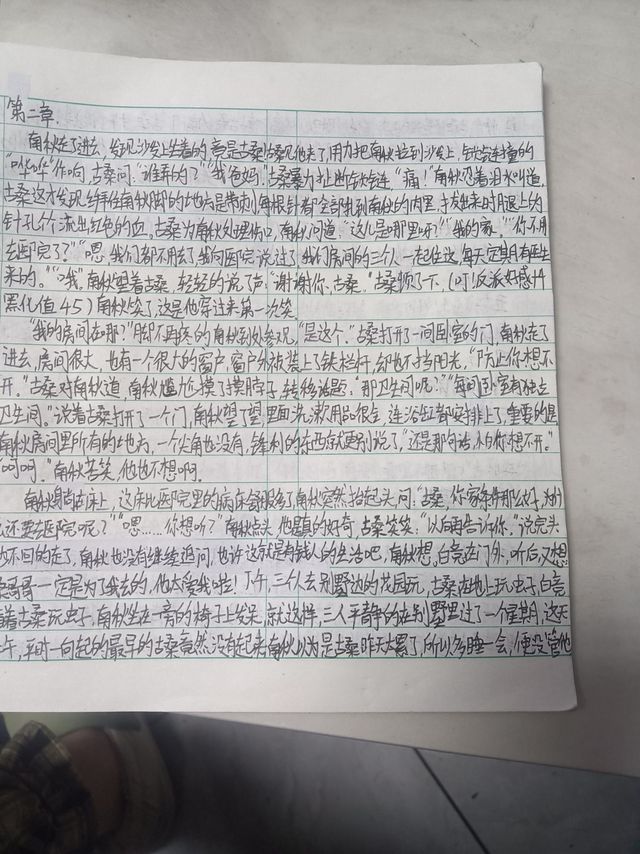 第二章.
角秋走了进去,发现沙发上坐着的竟是古桑,古桑见他来了,用力把角秋拉到沙发上,铁链撞的
"哗哗"作响,古桑问:"谁弄的?""我爸妈."古桑暴力扯断铁链."痛!"角秋忍着泪水叫道,
古桑这才发现绑住角秋脚的地方是带刺,每根针都全部扎到角秋的肉里,拔出来时腿上的
针孔个个流出红色的血.古桑为角秋处理伤口,角秋问道:"这儿是哪里呀?""我的家.""你不用
去医院了?""嗯,我们都不用了,我向医院说过了,我们房间的三个人一起住这,每天定期有医生
来的.""哦."角秋望着古桑,轻轻的说了声:"谢谢你,古桑."古桑顿了下.(叮!反派好感升
黑化值45)角秋笑了,这是他穿过来第一次笑.
"我的房间在哪?"脚不再疼的角秋到处参观,"是这个."古桑打开了一间卧室的门,角秋走了
进去,房间很大,也有一个很大的窗户,窗户外被装上了铁栏杆,却也不挡阳光,"防止你想不
开."古桑对角秋道,角秋尴尬摸了摸脖子,转移话题:"那卫生间呢?""每间卧室有独立
卫生间."说着古桑打开了一个门,角秋望了望,里面洗漱用品很全,连浴缸都安排上了,重要的是
角秋房间里所有的地方,一个尖角也没有,锋利的东西就更别说了,"还是那句话,怕你想不开."
"呵呵."角秋苦笑,他也不想啊.
角秋躺在床上,这床比医院里的病床舒服多了,角秋突然抬起头,问:"古桑,你家条件那么好,为什
么还要去医院呢?""嗯……你想听?"角秋点头,他是真的好奇,古桑笑笑:"以后再告诉你."说完头
也不回的走了,角秋也没有继续追问,也许这就是有钱人的生活吧,角秋想,白亮在门外,听后,又想
桑哥哥一定是为了我去的,他太爱我啦!下午,三个人去别野边的花园玩,古桑在地上玩虫子,白亮
看着古桑玩虫子,角秋坐在一旁的椅子上发呆,就这样,三人平静的在别野里过了一个星期,这天
上午,平时一向起的最早的古桑竟然没有起来,角秋以为是古桑昨天太累了,所以多睡一会,便没管他